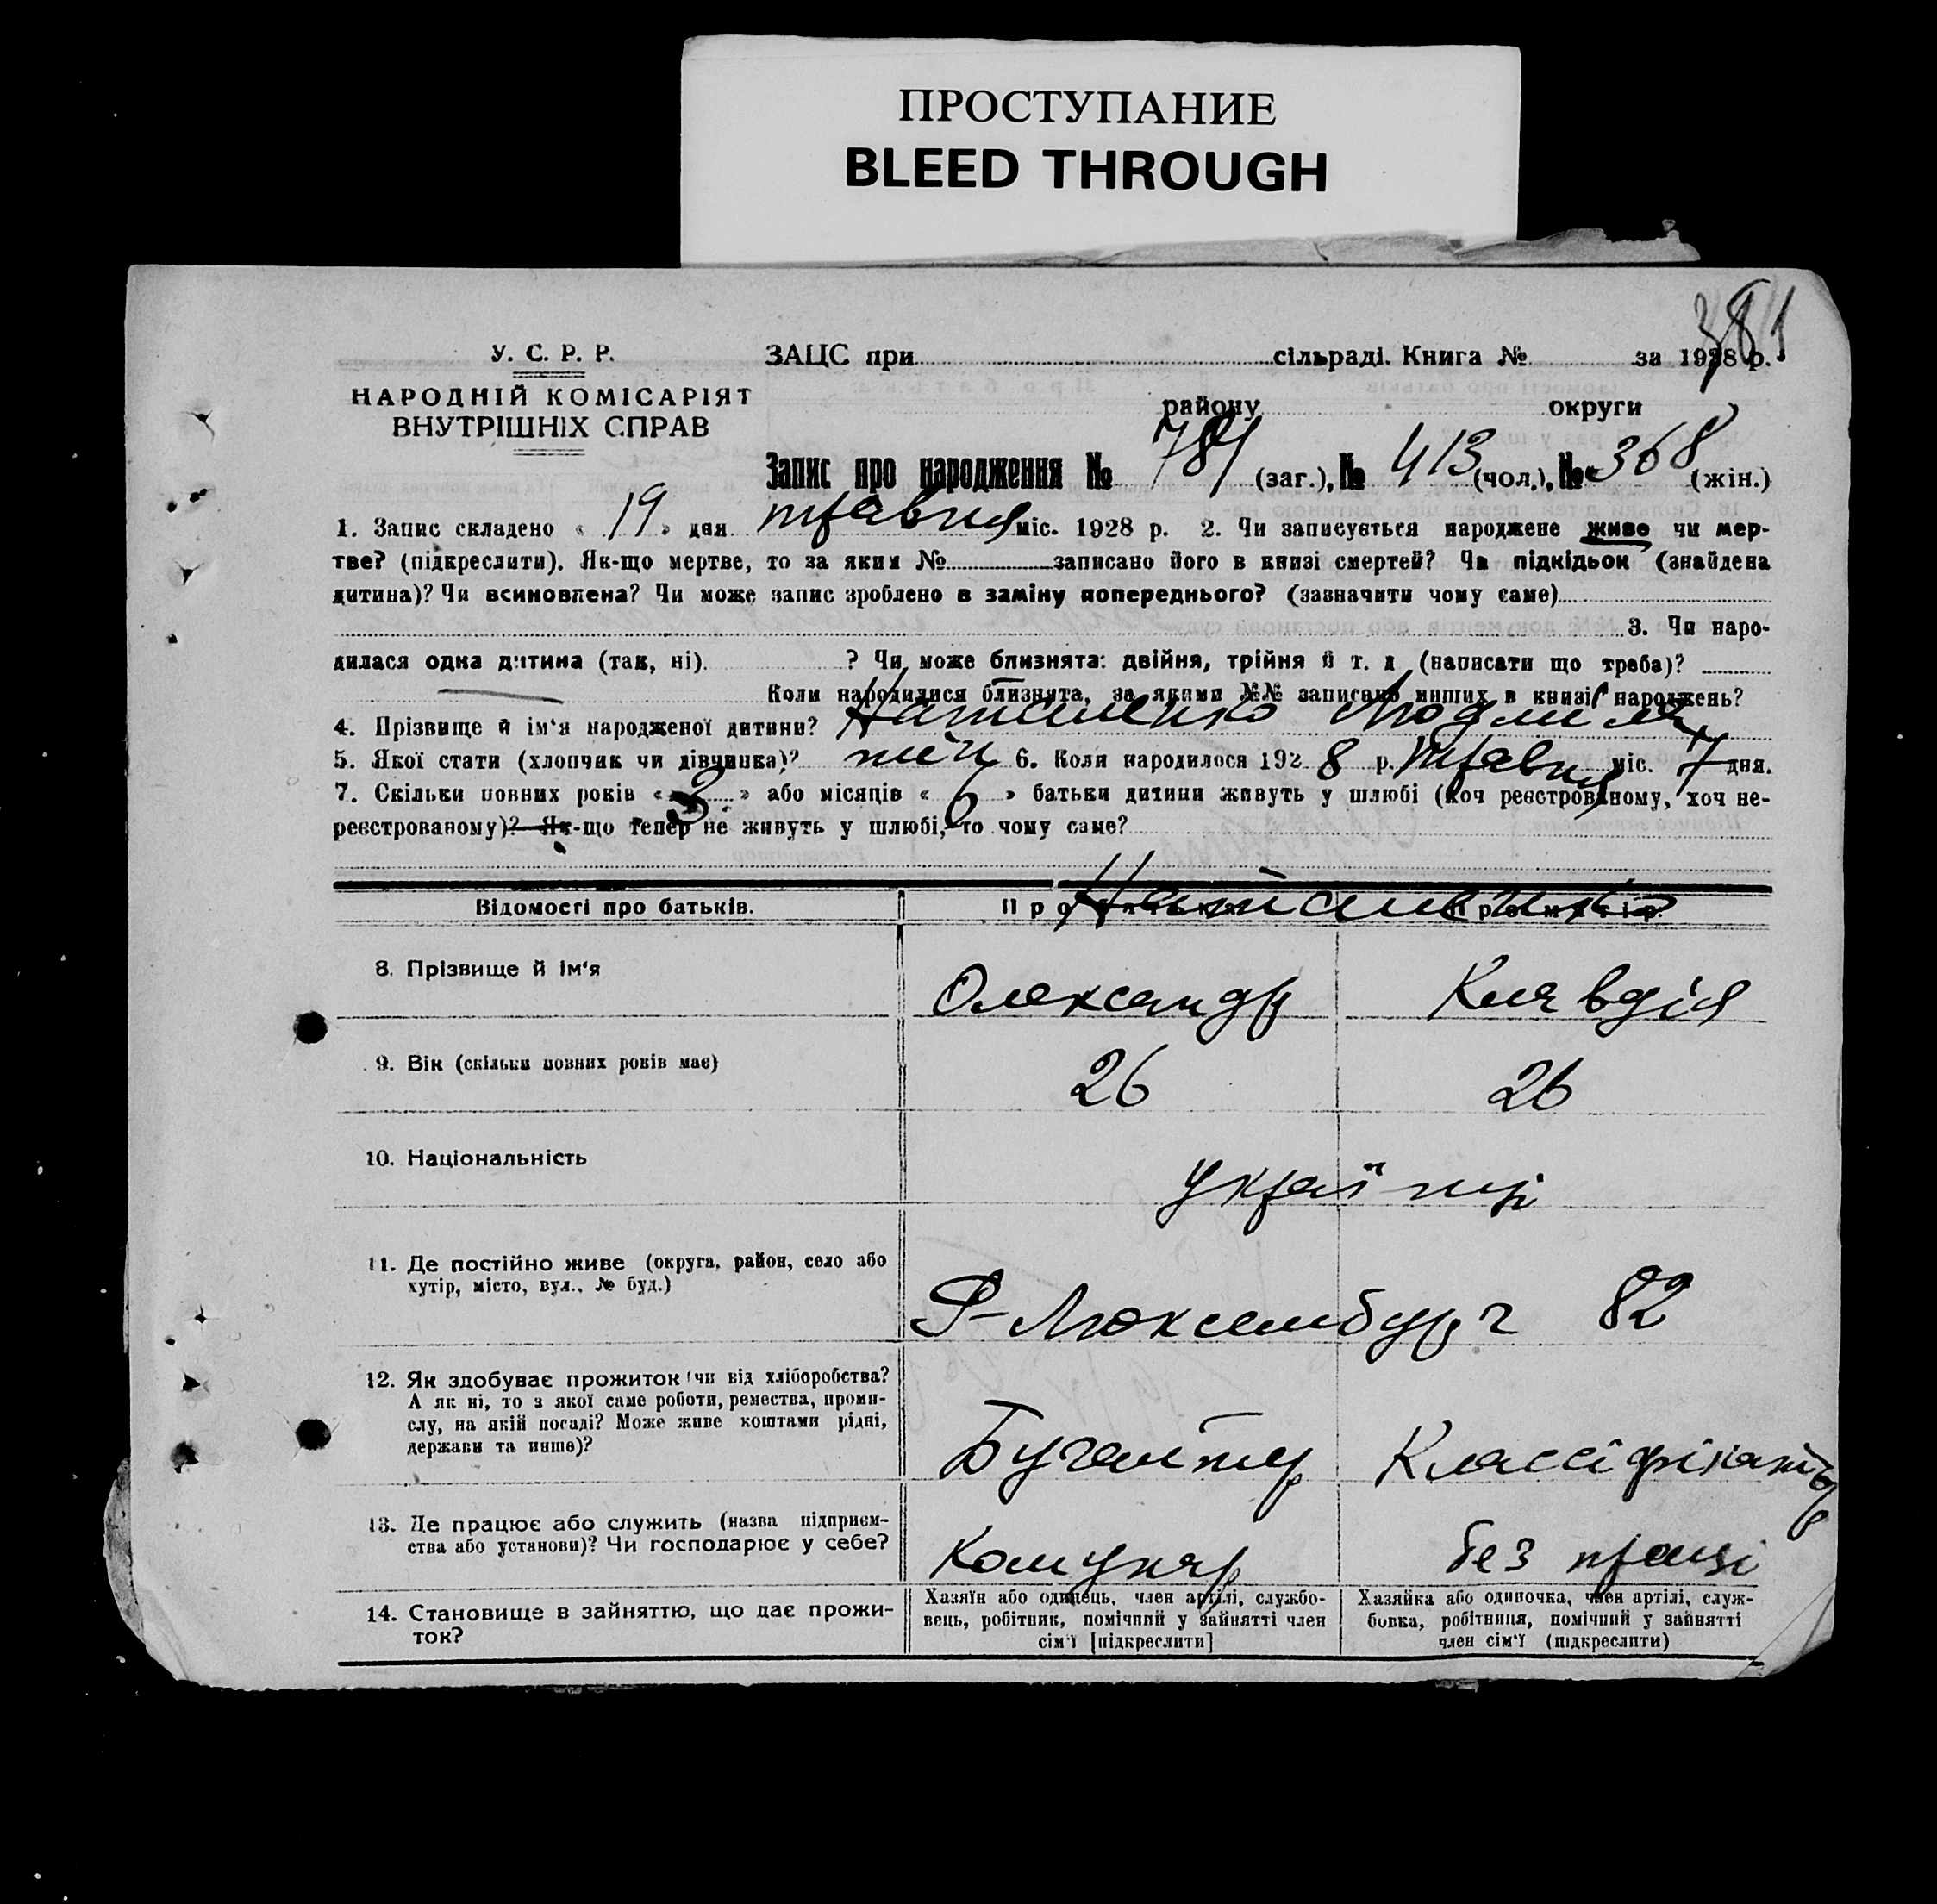 ПРОСТУПАНИЕ
BLEED THROUGH
381
У. С. Р. Р.
НАРОДНІЙ КОМІСАРІЯТ
ВНУТРІШНІХ СПРАВ
ЗАЦС при сільраді. Книга № за 1928 р.
району округи
Запис про народження № 781 (заг.), № 413 (чол.), № 368 (жін.)
1. Запис складено « 19 » дня травня міс. 1928 р. 2. Чи записується народжене живе чи мер-
тве? (підкреслити). Як-що мертве, то за яким № записано його в книзі смертей? Чи підкідьок (знайдена
дитина)? Чи всиновлена? Чи може запис зроблено в заміну попереднього? (зазначити чому саме)
3. Чи наро-
дилася одна дитина (так, ні). ? Чи може близнята: двійня, трійня й т. д. (написати що треба)?
Коли народилися близнята, за якими №№ записано инших в книзі народжень?
4. Прізвище й ім'я народженої дитини? Людмила
5. Якої стати (хлопчик чи дівчинка)? жін 6. Коли народилося 1928 р. травня міс. 7 дня.
7. Скільки повних років « 3 » або місяців « 6 » батьки дитини живуть у шлюбі (хоч реєстрованому, хоч не-
реєстрованому)? Як-що тепер не живуть у шлюбі, то чому саме?
Відомості про батьків. Про батька Про матір
8. Прізвище й ім'я Олександр Клавдія
9. Вік (скільки повних років має) 26 26
10. Національність українці
11. Де постійно живе (округа, район, село або
хутір, місто, вул., № буд.) Р-Люксембург 82
12. Як здобуває прожиток (чи від хліборобства?
А як ні, то з якої саме роботи, ремества, проми-
слу, на якій посаді? Може живе коштами рідні,
держави та инше)? Бугалтер Классіфікатор
13. Де працює або служить (назва підприєм-
ства або установи)? Чи господарює у себе? Комунар без праці
14. Становище в зайняттю, що дає прожи-
ток?
Хазяїн або одинець, член артілі, службо-
вець, робітник, помічний у зайнятті член
сім'ї [підкреслити]
Хазяйка або одиночка, член артілі, служ-
бовка, робітниця, помічний у зайнятті
член сім'ї (підкреслити)